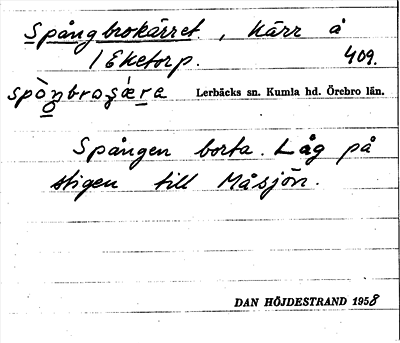 Spångbrokärret, Kärr å
1 Eketorp. 409.
spòŋbroɕæ̀ra Lerbäcks sn. Kumla hd. Örebro län.
Spången borta. Låg på
stigen till Måsjön.
DAN HÖJDESTRAND 1958